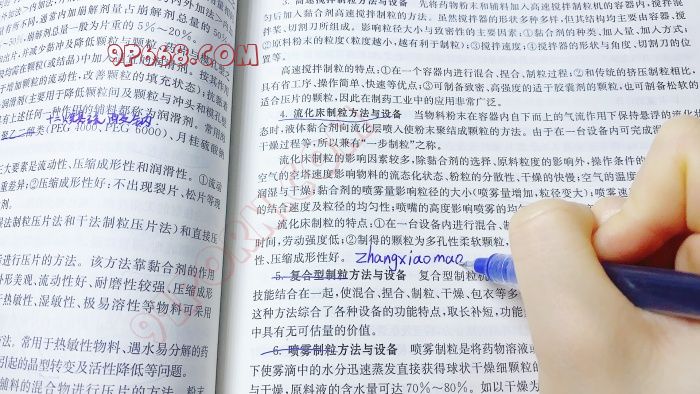 不同,通常内加崩解剂量占崩解剂总量的50%
50%,崩解剂总量一般为片重的5%~20%。
出片,并减少黏冲及降低颗粒与颗粒
增加颗粒的流动性,改善颗粒的填充状态);抗黏
润滑剂(主要用于降低颗粒间及颗粒与冲头和模孔
有上述任何一种作用的辅料都称为润滑剂。常用
聚乙二醇类(PEG 4000、PEG 6000)、月桂硫酸钠
大要素是流动性、压缩成形性和润滑性。①流动
重差异;②压缩成形性好:不出现裂片、松片等现
剂。
湿法制粒压片法和干法制粒压片法)和直接压
进行压片的方法。该方法靠黏合剂的作用
外形美观、流动性好、耐磨性较强、压缩成形
于热敏性、湿敏性、极易溶性等物料可采用
方法。常用于热敏性物料、遇水易分解的药
引起的晶型转变及活性降低等问题。
辅料的混合物进行压片的方法。
3. 高速搅拌制粒方法与设备 先将药物粉末和辅料加入高速搅拌制粒机的容器内,搅拌混
匀后加入黏合剂高速搅拌制粒的方法。虽然搅拌器的形状多种多样,但其结构均主要由容器、搅
拌桨、切割刀所组成。影响粒径大小与致密性的主要因素:①黏合剂的种类、加入量、加入方式;
②原料粉末的粒度(粒度越小,越有利于制粒);③搅拌速度;④搅拌器的形状与角度、切割刀的位
置等。
高速搅拌制粒的特点:①在一个容器内进行混合、捏合、制粒过程;②和传统的挤压制粒相比,
具有省工序、操作简单、快速等优点;③可制备致密、高强度的适于胶囊剂的颗粒,也可制备松软的
适合压片的颗粒,因此在制药工业中的应用非常广泛。
4. 流化床制粒方法与设备 当物料粉末在容器内自下而上的气流作用下保持悬浮的流化状
态时,液体黏合剂向流化层喷入使粉末聚结成颗粒的方法。由于在一台设备内可完成
干燥过程等,所以兼有“一步制粒”之称。
流化床制粒的影响因素较多,除黏合剂的选择、原料粒度的影响外,操作条件的
空气的空塔速度影响物料的流态化状态、粉粒的分散性、干燥的快慢;空气的温度
润湿与干燥;黏合剂的喷雾量影响粒径的大小(喷雾量增加,粒径变大);喷雾速
的结合速度及粒径的均匀性;喷嘴的高度影响喷雾的均
流化床制粒的特点:①在一台设备内进行混合、制
时间,劳动强度低;②制得的颗粒为多孔性柔软颗粒,
性、压缩成形性好。zhangxiaomao
5. 复合型制粒方法与设备 复合型制粒机
技能结合在一起,使混合、捏合、制粒、干燥、包衣等多
这种方法综合了各种设备的功能特点,取长补短,功能
中具有无可估量的价值。
6. 喷雾制粒方法与设备 喷雾制粒是将药物溶液或
下使雾滴中的水分迅速蒸发直接获得球状干燥细颗粒的
与干燥,原料液的含水量可达70%~80%。如以干燥为